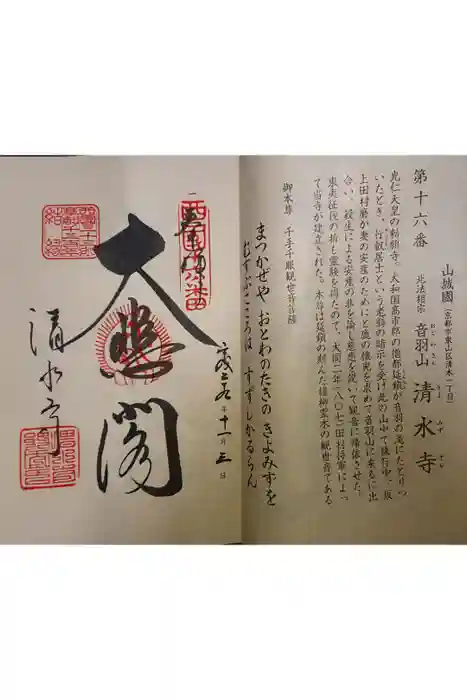 山城國 (京都市東山区清水一丁目)
第十六番 北法相宗 音羽山 清水寺
おとわさん きよみずでら
光仁天皇の勅願寺。大和国高市郡の僧都延鎮が音羽の滝にたどりつ
いたとき、行叡居士という老翁の暗示を受け此の山中で練行中、坂
上田村麿が妻の安産のためにと鹿の権兜を求めて音羽山に来るに出
合い、殺生による安産の非を諭し慈悲を説いて観音に帰依させた。
東夷征伐の折も霊験を得たので、大同二年(八〇七)田村将軍によっ
て当寺が建立された。本尊は延鎮の刻んだ楊柳霊木の観世音である
御本尊 千手千眼観世音菩薩
まつかぜや おとわのたきの きよみずを
むすぶこころは すずしかるらん
年十一月三日
奉拝
大悲閣
清水寺